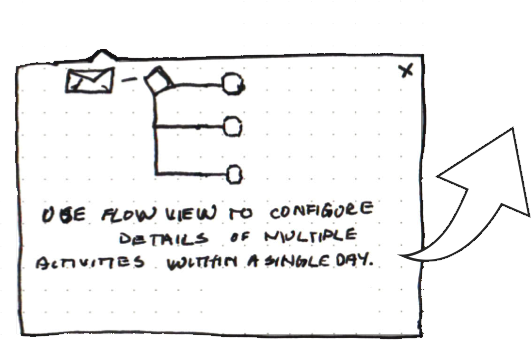 X
USE FLOW VIEW TO CONFIGURE
DETAILS OF MULTIPLE
ACTIVITIES WITHIN A SINGLE DAY.